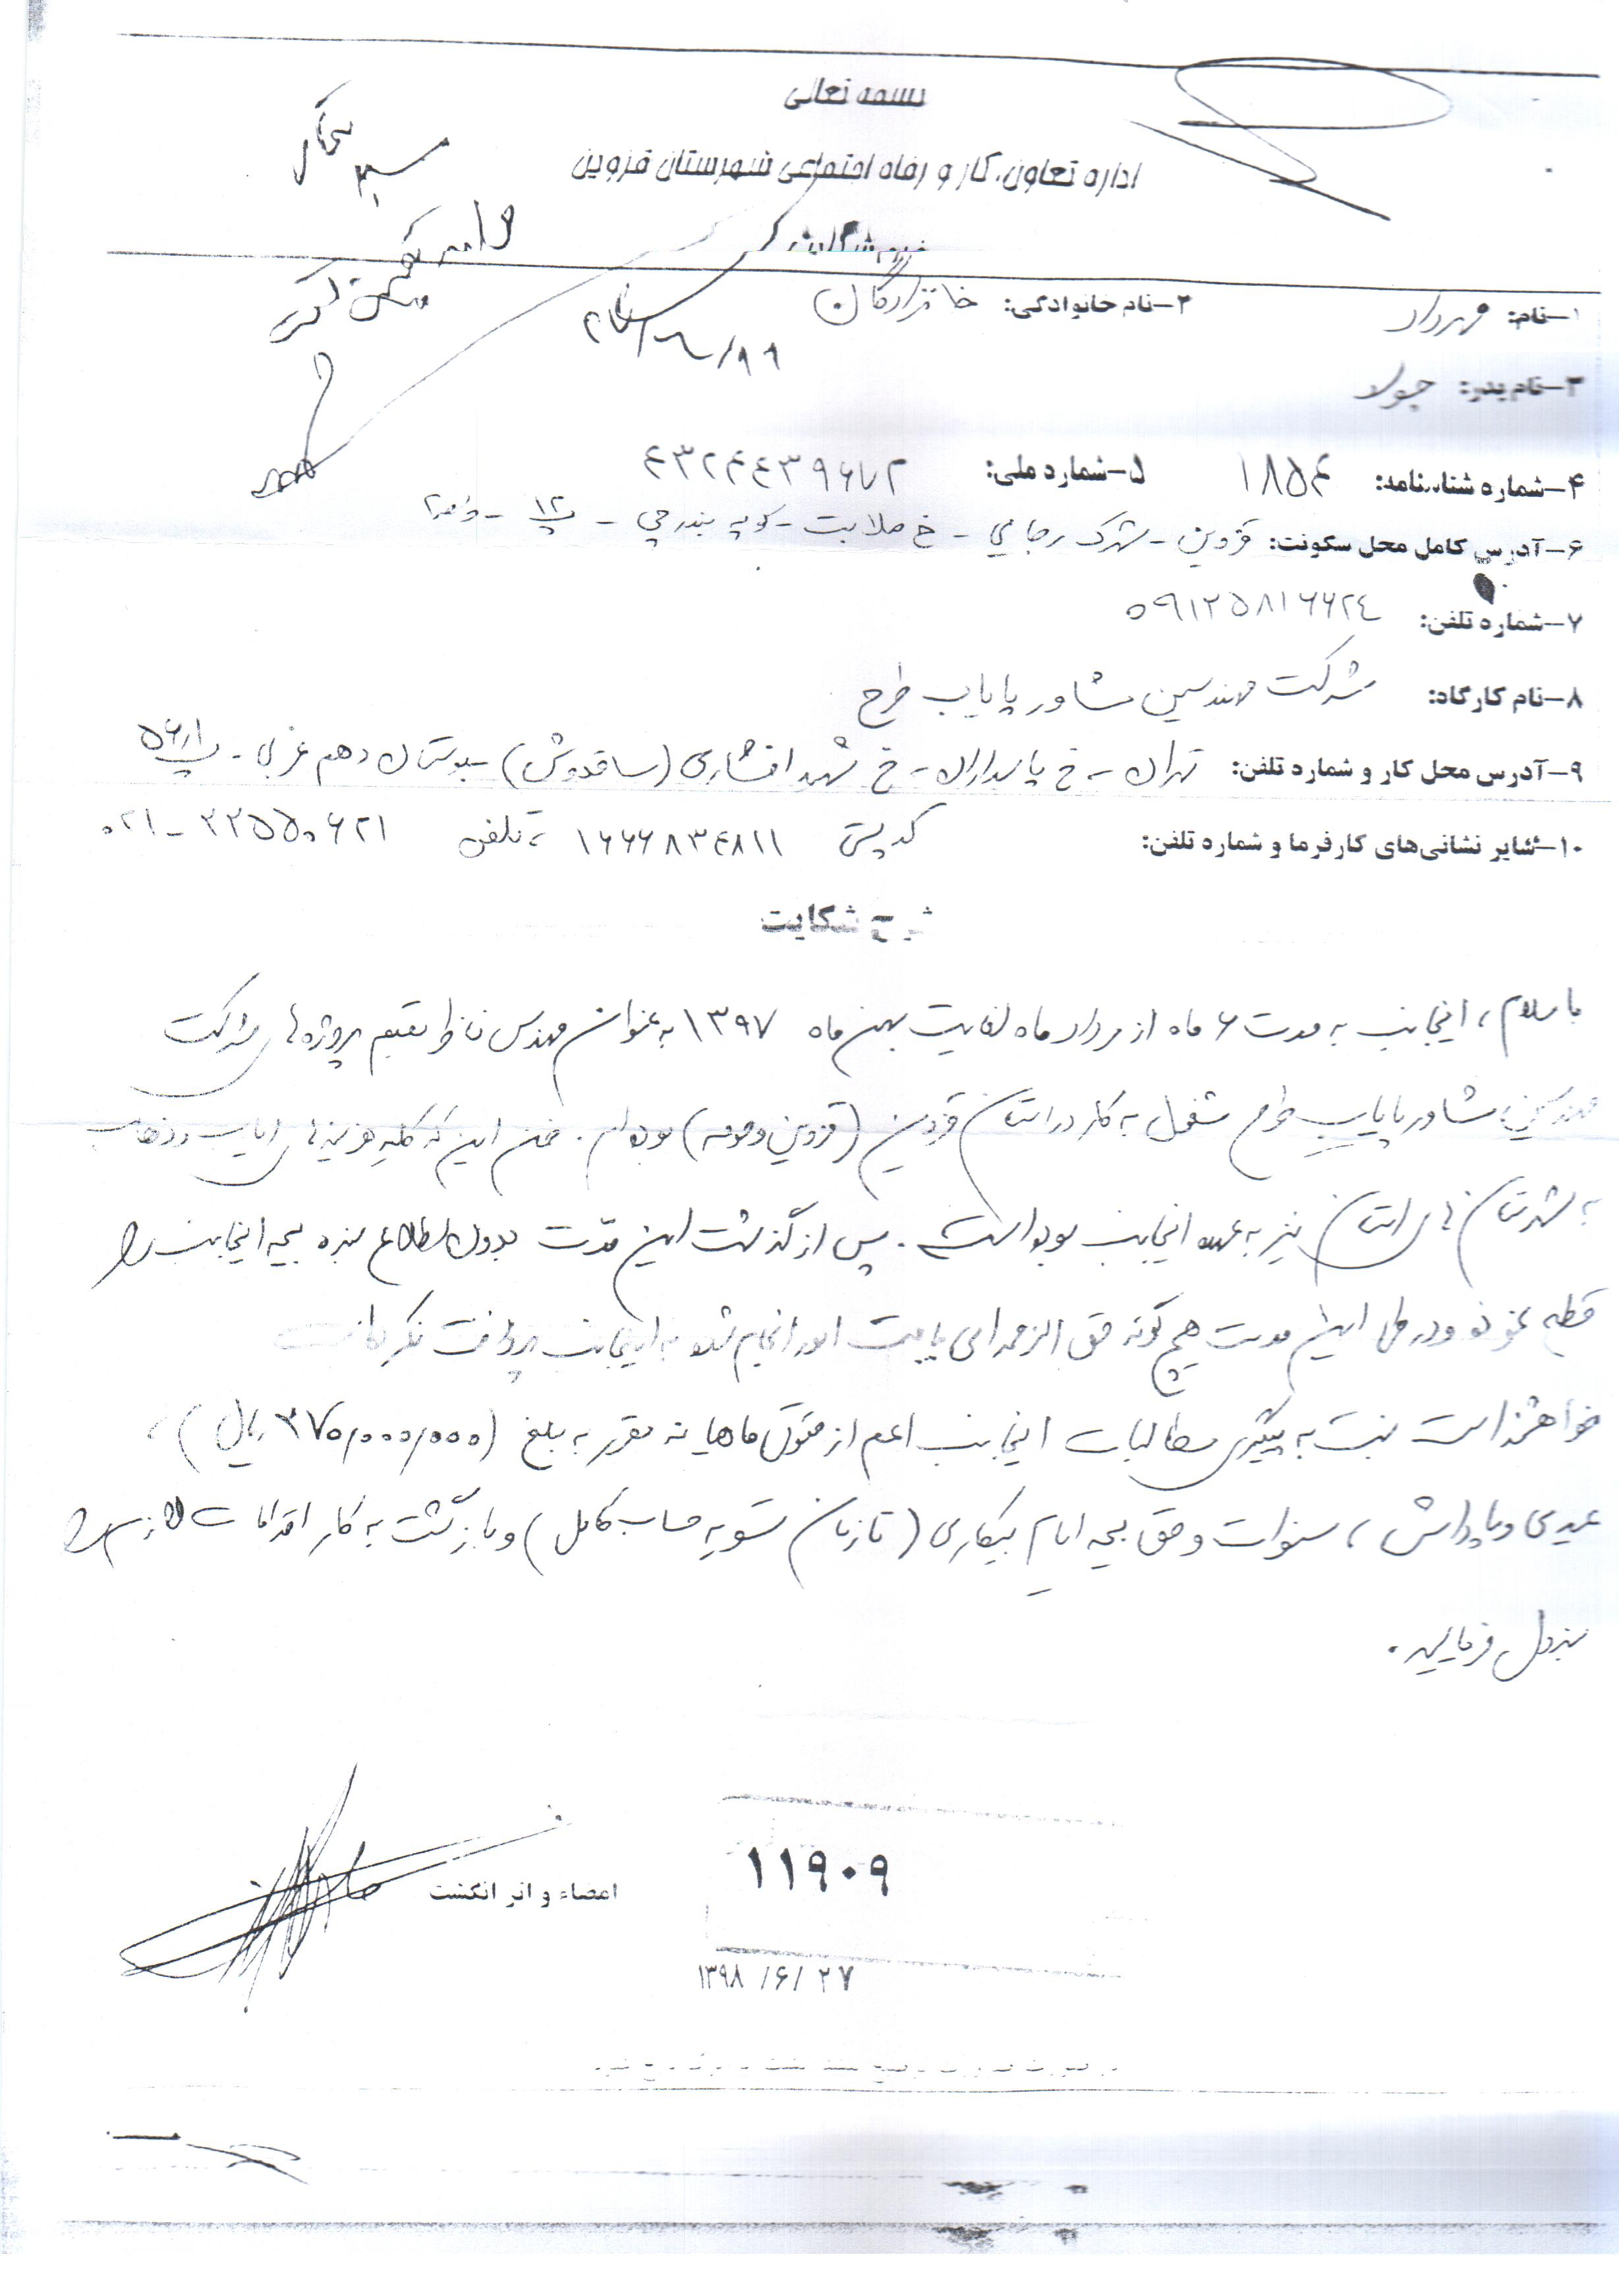 بسمه تعالی
اداره تعاون، کار و رفاه اجتماعی شهرستان قزوین
۱-نام: مهرداد ۲-نام خانوادگی:
۳-نام پدر:
۴-شماره شناسنامه: ۱۸۵۴ ۵-شماره ملی: ۴۳۲۴۴۳۹۶۷۲
۶-آدرس کامل محل سکونت: قزوین - شهرک رجایی - خ ملاصدرا - کوچه بندرچی - پ ۱۲ - واحد ۲
۷-شماره تلفن: ۰۹۱۲۵۸۱۶۶۲۴
۸-نام کارگاه: شرکت مهندسین مشاور پایاب طرح
۹-آدرس محل کار و شماره تلفن: تهران - خ پاسداران - خ شهید افشاری (ساقدوش) - بوستان دهم غربی - پلاک ۵۶
۱۰-سایر نشانی‌های کارفرما و شماره تلفن: کد پستی ۱۶۶۶۸۳۴۸۱۱ ، تلفن ۰۲۱-۲۲۵۵۰۶۲۱
شرح شکایت
با سلام، اینجانب به مدت ۶ ماه از مرداد ماه لغایت بهمن ماه ۱۳۹۷ به عنوان مهندس ناظر مقیم پروژه های شرکت
مهندسین مشاور پایاب طرح مشغول به کار در استان قزوین (قزوین و حومه) بوده ام. ضمن این که کلیه هزینه های ایاب و ذهاب
به شهرستان های استان نیز به عهده اینجانب بوده است. پس از گذشت این مدت بدون اطلاع بنده بیمه اینجانب را
قطع نموده و در طی این مدت هیچ گونه حق الزحمه ای بابت امور انجام شده به اینجانب پرداخت نکرده است
خواهشمند است نسبت به پیگیری مطالبات اینجانب اعم از حقوق ماهیانه مقرر به مبلغ (۳۷۰/۰۰۰/۰۰۰ ریال)،
عیدی و پاداش، سنوات و حق بیمه ایام بیکاری (تا زمان تسویه حساب کامل) و بازگشت به کار اقدامات لازم را
مبذول فرمایید.
۱۱۹۰۹
امضاء و اثر انگشت
۱۳۹۸/۶/۲۷